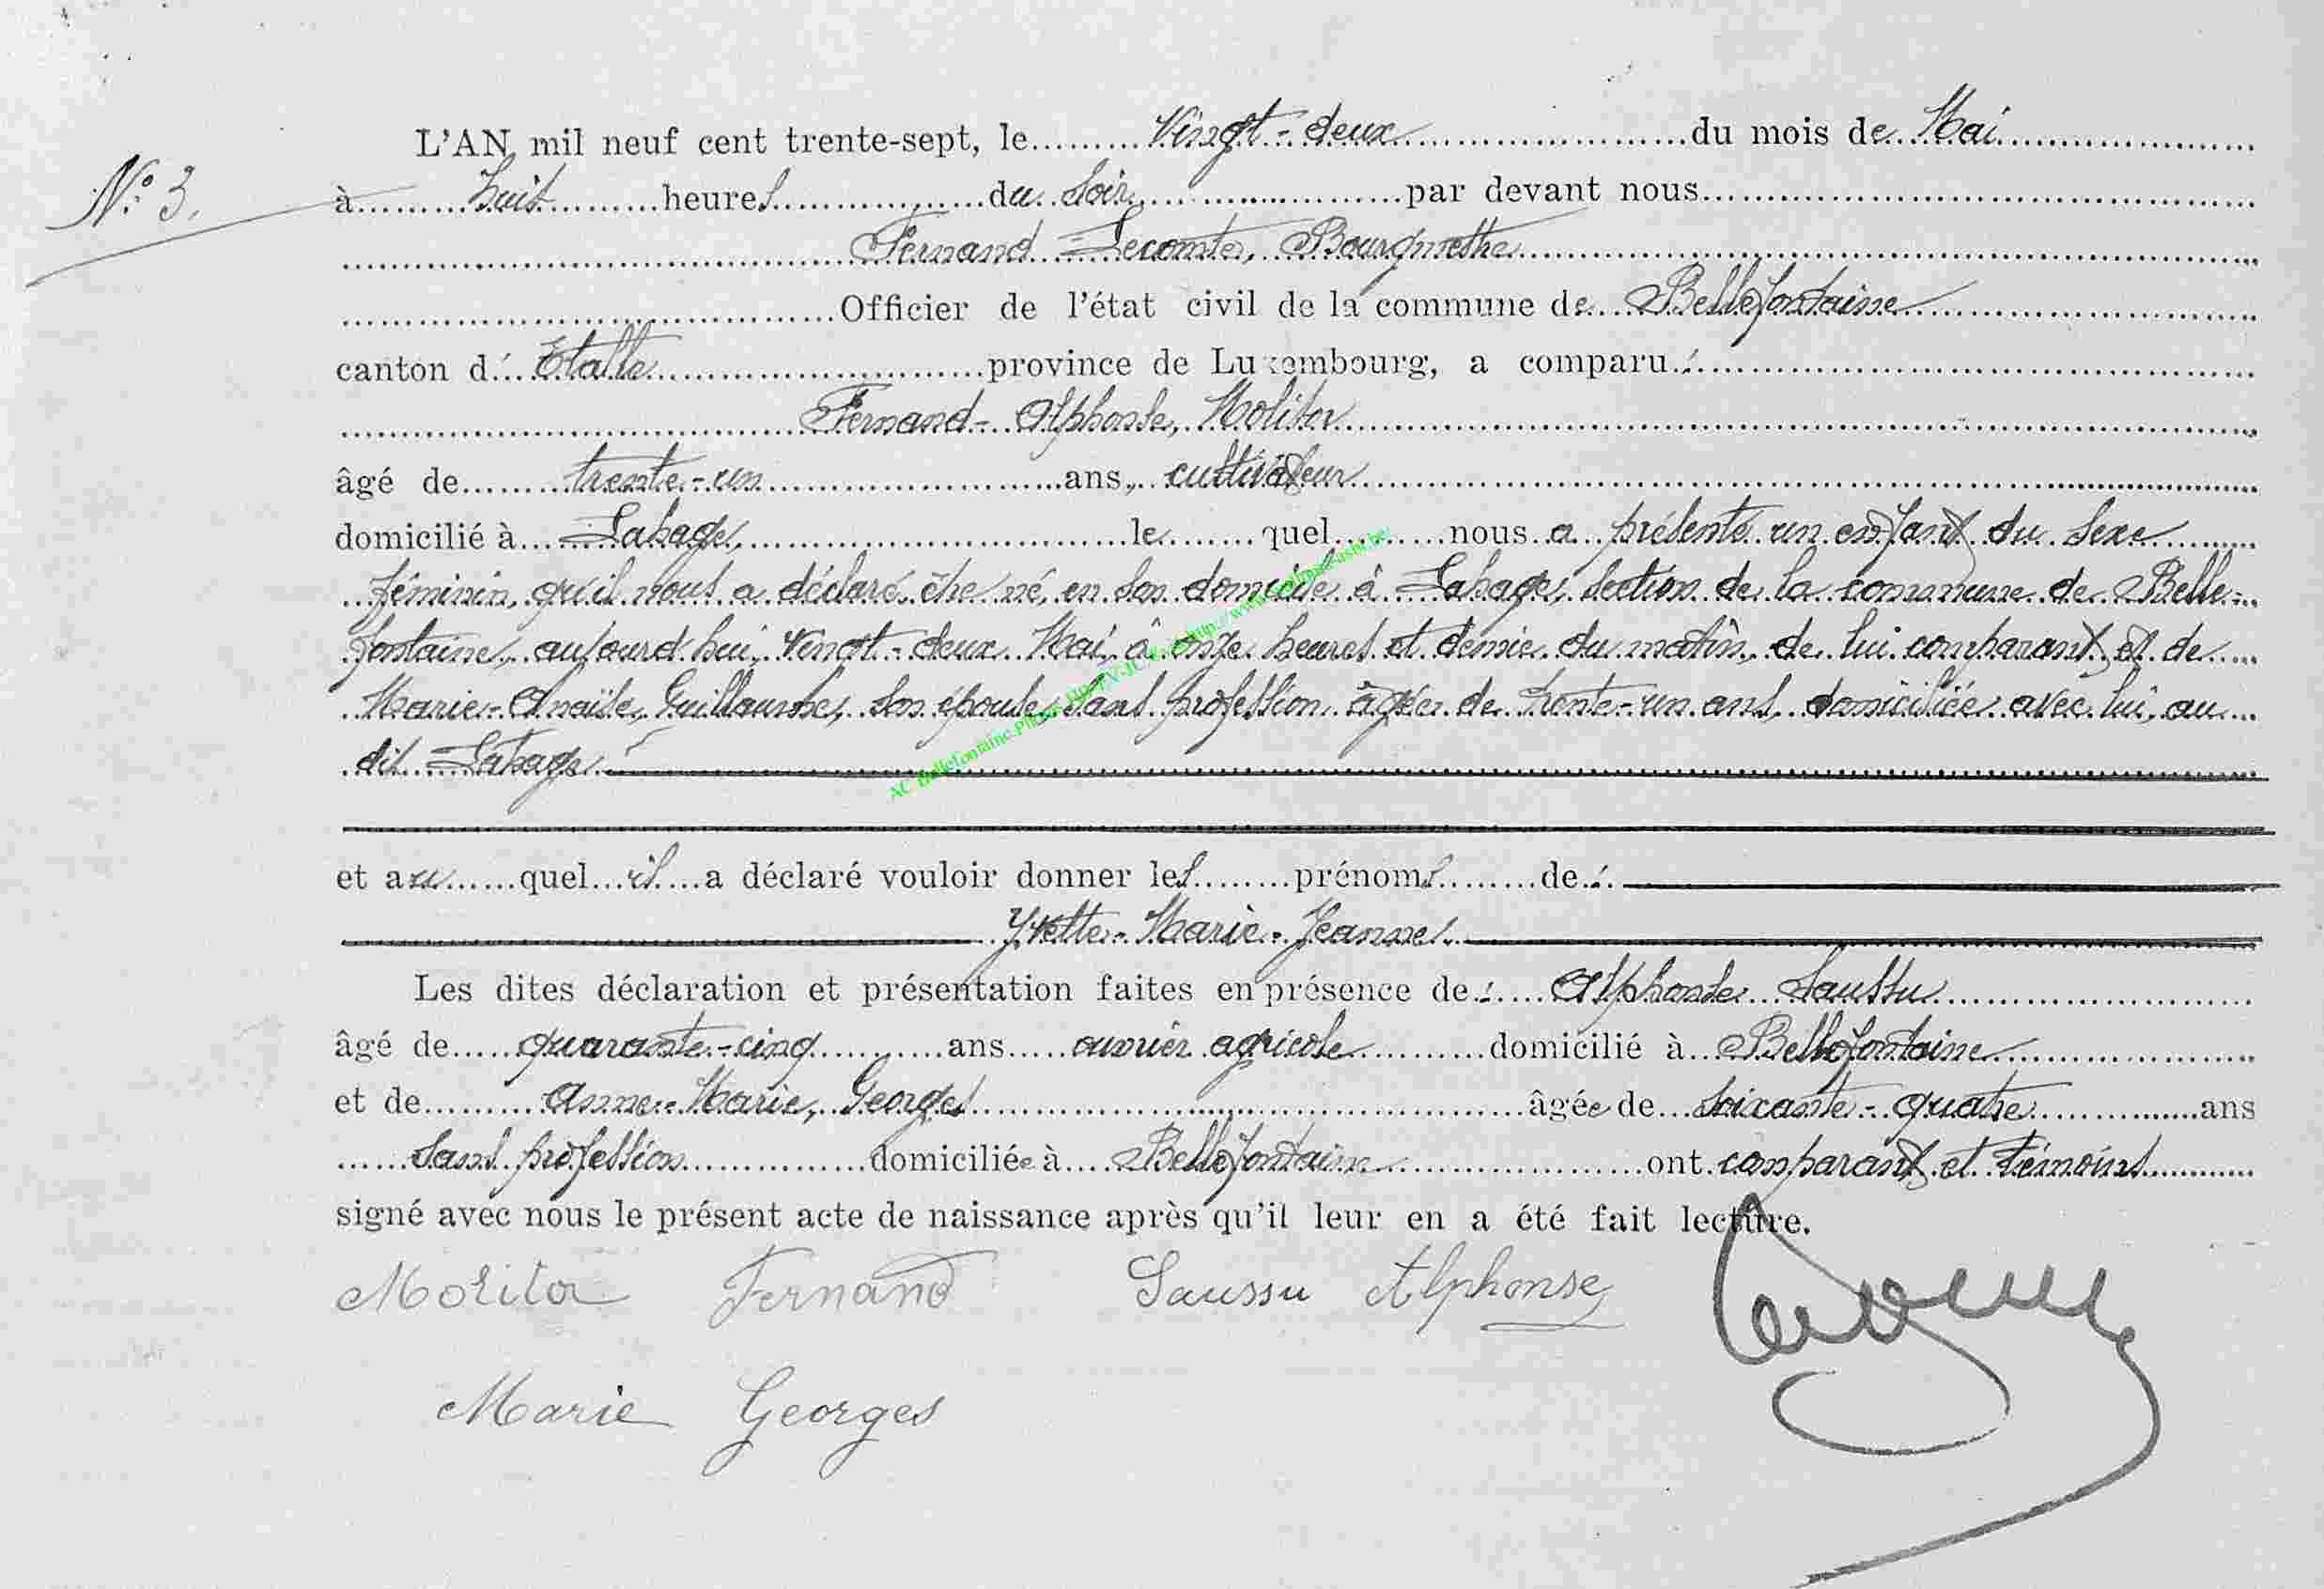 L'AN mil neuf cent trente-sept, le Vingt-deux du mois de Mai
N° 3. à huit heures du soir, par devant nous
Fernand Lecomte, Bourgmestre
Officier de l'état civil de la commune de Bellefontaine
canton d' Etalle province de Luxembourg, a comparu :
Fernand-Alphonse, Molitor
âgé de trente-un ans, cultivateur
domicilié à Lahage, le quel nous a présenté un enfant du sexe
féminin, qu'il nous a déclaré être né, en son domicile à Lahage, section de la commune de Belle-
fontaine, aujourd'hui, vingt-deux Mai, à onze heures et demie du matin, de lui comparant, et de
Marie-Anaïse, Guillaume, son épouse, sans profession, âgée de trente-un ans, domiciliée avec lui, au
dit Lahage
et au quel il a déclaré vouloir donner les prénoms de :
Yvette-Marie-Jeanne.
Les dites déclaration et présentation faites en présence de : Alphonse Saussu
âgé de quarante-cinq ans ouvrier agricole domicilié à Bellefontaine
et de Anne-Marie, Georges âgée de soixante-quatre ans
sans profession domiciliée à Bellefontaine ont comparant et témoins
signé avec nous le présent acte de naissance après qu'il leur en a été fait lecture.
Molitor Fernand Saussu Alphonse
Marie Georges